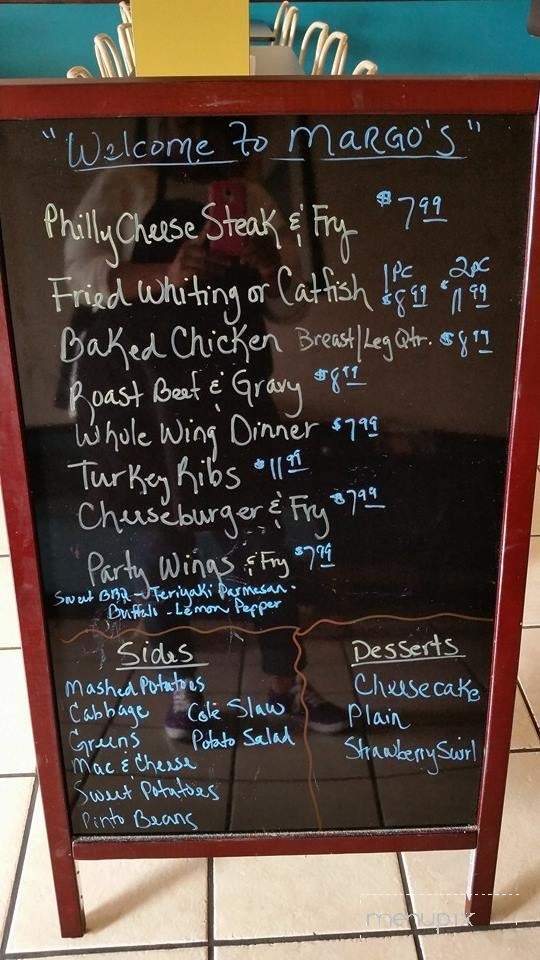 "Welcome to MARGO'S"
Philly Cheese Steak & Fry $7.99
Fried Whiting or Catfish 1pc $8.99 2pc $11.99
Baked Chicken Breast/Leg Qtr. $8.99
Roast Beef & Gravy $8.99
Whole Wing Dinner $7.99
Turkey Ribs $11.99
Cheeseburger & Fry $7.99
Party Wings & Fry $7.99
Sweet BBQ - Teriyaki Parmesan -
Buffalo - Lemon Pepper
Sides
Mashed Potatoes
Cabbage Cole Slaw
Greens Potato Salad
Mac & Cheese
Sweet Potatoes
Pinto Beans
Desserts
Cheesecake
Plain
Strawberry Swirl
menupix